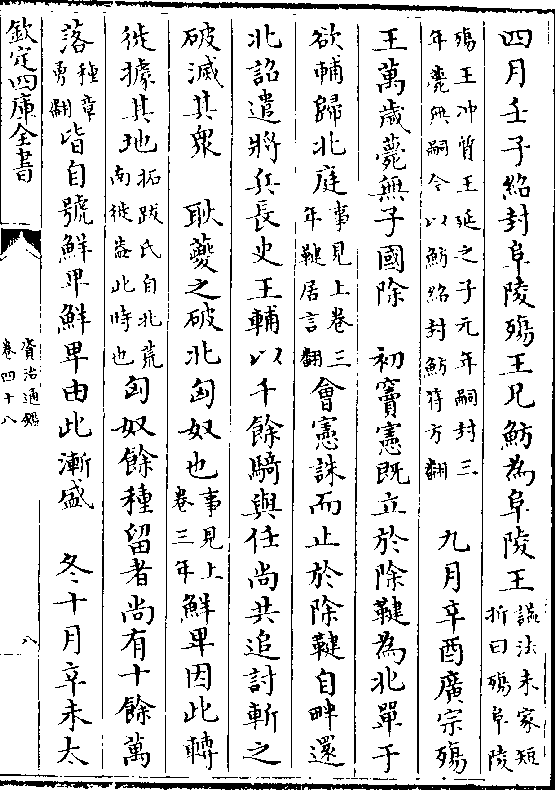 四月壬子紹封阜陵殤王兄魴為阜陵王諡法未家短折曰殤阜陵
殤王冲質王延之子元年嗣封三年薨無嗣今以魴紹封魴符方翻 九月辛酉廣宗殤
王萬歳薨無子國除 初竇憲既立於除鞬為北單于
欲輔歸北庭事見上卷三年鞬居言翻會憲誅而止於除鞬自畔還
北詔遣將兵長史王輔以千餘騎與任尚共追討斬之
破滅其衆 耿夔之破北匈奴也事見上卷三年鮮卑因此轉
徙據其地拓跋氏自北荒南徙葢此時也匈奴餘種留者尚有十餘萬
落種章勇翻皆自號鮮卑鮮卑由此漸盛 冬十月辛未太
欽定四庫全書
資治通鑑
卷四十八
八